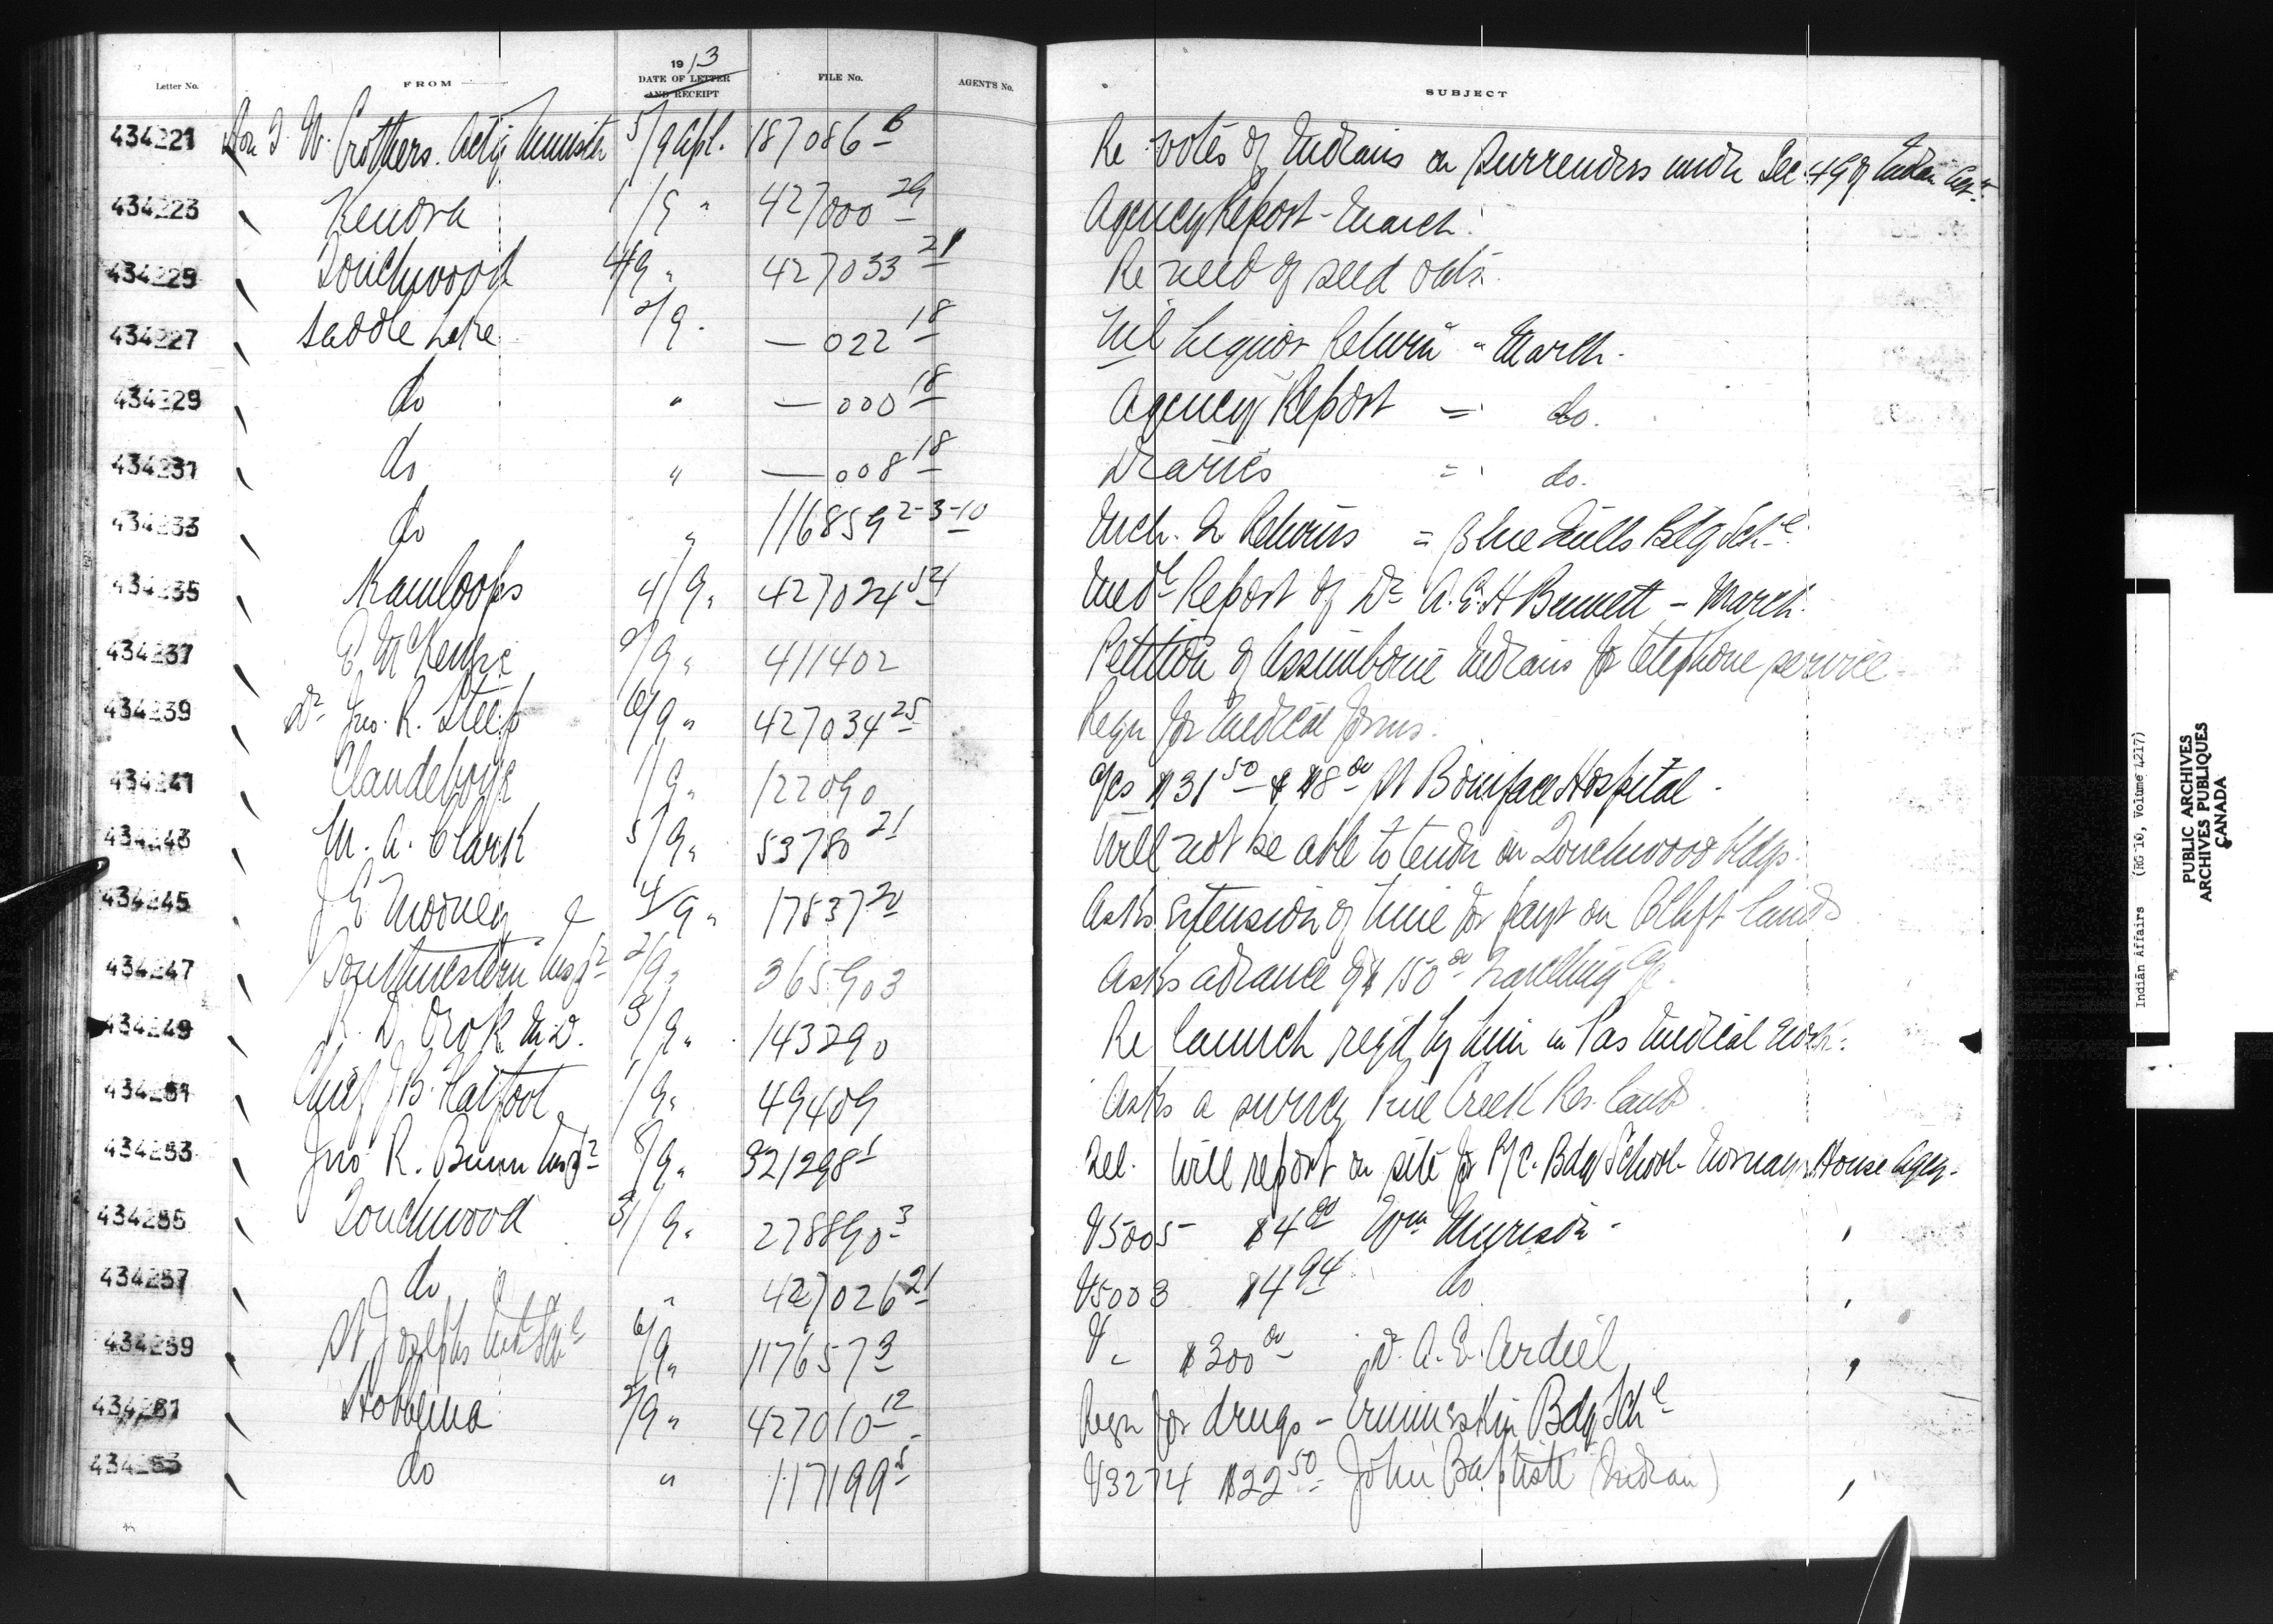 Letter No. FROM 1913 DATE OF LETTER AND RECEIPT FILE No. AGENT'S No. SUBJECT
434221 Hon T. W. Crothers. Actg Minister 5/9 Apl. 187086 6 Re votes of Indians on surrenders under Sec. 49 of Indian Act
434223 Kenora 1/9 " 427000 29 Agency Report - March.
434225 Touchwood 4/9 " 427033 21 Re need of seed oats.
434227 Saddle Lake 2/9 " — 022 18 Nil Liquor Return " March.
434229 do " — 000 18 Agency Report = do.
434231 do " — 008 18 Diaries = do.
434233 do " 116859 2-3-10 Mch. Qr Returns = Blue Quills Bdg Schl.
434235 Kamloops 4/9 " 427024 54 Medl Report of Dr A. E. H Bennett - March.
434237 E. McKenzie 2/9 " 411402 Petition of Assiniboine Indians for telephone service
434239 Dr Jno. R. Steep 6/9 " 427034 25 Reqn for Medical forms.
434241 Clandeboye 1/9 " 122090 a/cs $31 50 & $8 00 St Boniface Hospital
434243 M. A. Clark 5/9 " 53780 21 Will not be able to tender on Touchwood bldgs.
434245 J E Mooney 4/9 " 17837 20 Asks extension of time for payt on lands
434247 Southwestern Insp 2/9 " 365903 Asks advance of $150 00 travelling
434249 R. D. Orok M.D. 3/9 " 143290 Re launch reqd by him in Pas Medical work.
434251 Chief J B. Flatfoot 1/9 " 49409 Asks a survey Pine Creek Res. lands
434253 Jno R. Bunn Inspr 8/9 " 321298 1 Tel. Will report on site for R/C. Bdg School - Norway House Agcy.
434255 Touchwood 31/9 " 278890 3 V5005 $4 Wm Murison
434257 do " 427026 21 V5003 $4 94 do
434259 St Josephs Indl Schl 6/9 " 117657 3 V $300 00 Dr. A. E. Ardiel
434261 Hobbema 2/9 " 427010 12 Reqn for drugs - Ermineskin Bdg Schl
434263 do " 117199 5 V3274 $22 50 John Baptiste (Indian)
Indian Affairs (RG 10, Volume 4217)
PUBLIC ARCHIVES
ARCHIVES PUBLIQUES
CANADA